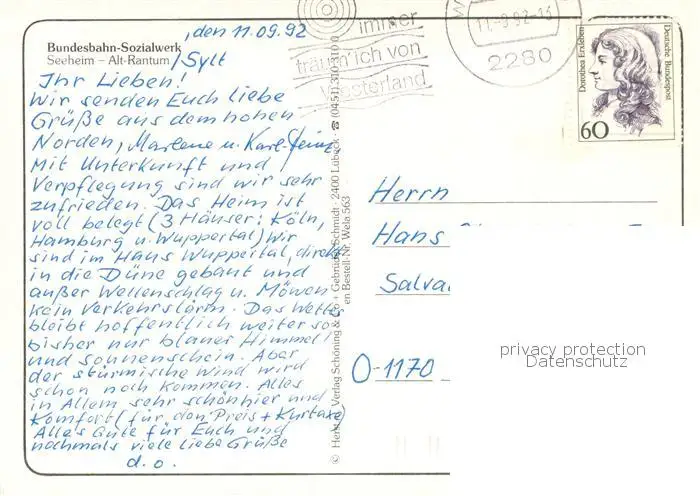 , den 11.09.92
Bundesbahn-Sozialwerk
Seeheim – Alt-Rantum/Sylt
Ihr Lieben!
Wir senden Euch liebe
Grüße aus dem hohen
Norden, Marlene u. Karl-Heinz
Mit Unterkunft und
Verpflegung sind wir sehr
zufrieden. Das Heim ist
voll belegt (3 Häuser: Köln,
Hamburg u. Wuppertal) Wir
sind im Haus Wuppertal, direkt
in die Düne gebaut und
außer Wellenschlag u. Möwen
kein Verkehrslärm. Das Wetter
bleibt hoffentlich weiter so
bisher nur blauer Himmel
und Sonnenschein. Aber
der stürmische Wind wird
schon noch kommen. Alles
in Allem sehr schön hier und
Komfort (für den Preis + Kurtaxe)
Alles Gute für Euch und
nochmals viele liebe Grüße
d. o.
Verlag Schöning & Co + Gebrüder Schmidt, 2400 Lübeck
Bestell-Nr. Wela 563
immer
träum' ich von
Westerland
11.-9.92-13
2280
Dorothea Erxleben
Deutsche Bundespost
60
Herrn
Hans
Salva
O-1170
privacy protection
Datenschutz